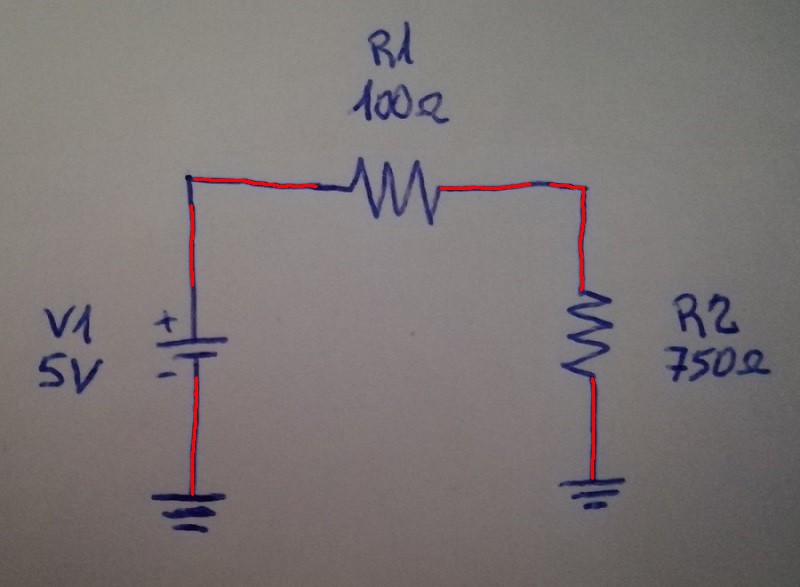 R1
100Ω
V1
5V
+
-
R2
750Ω